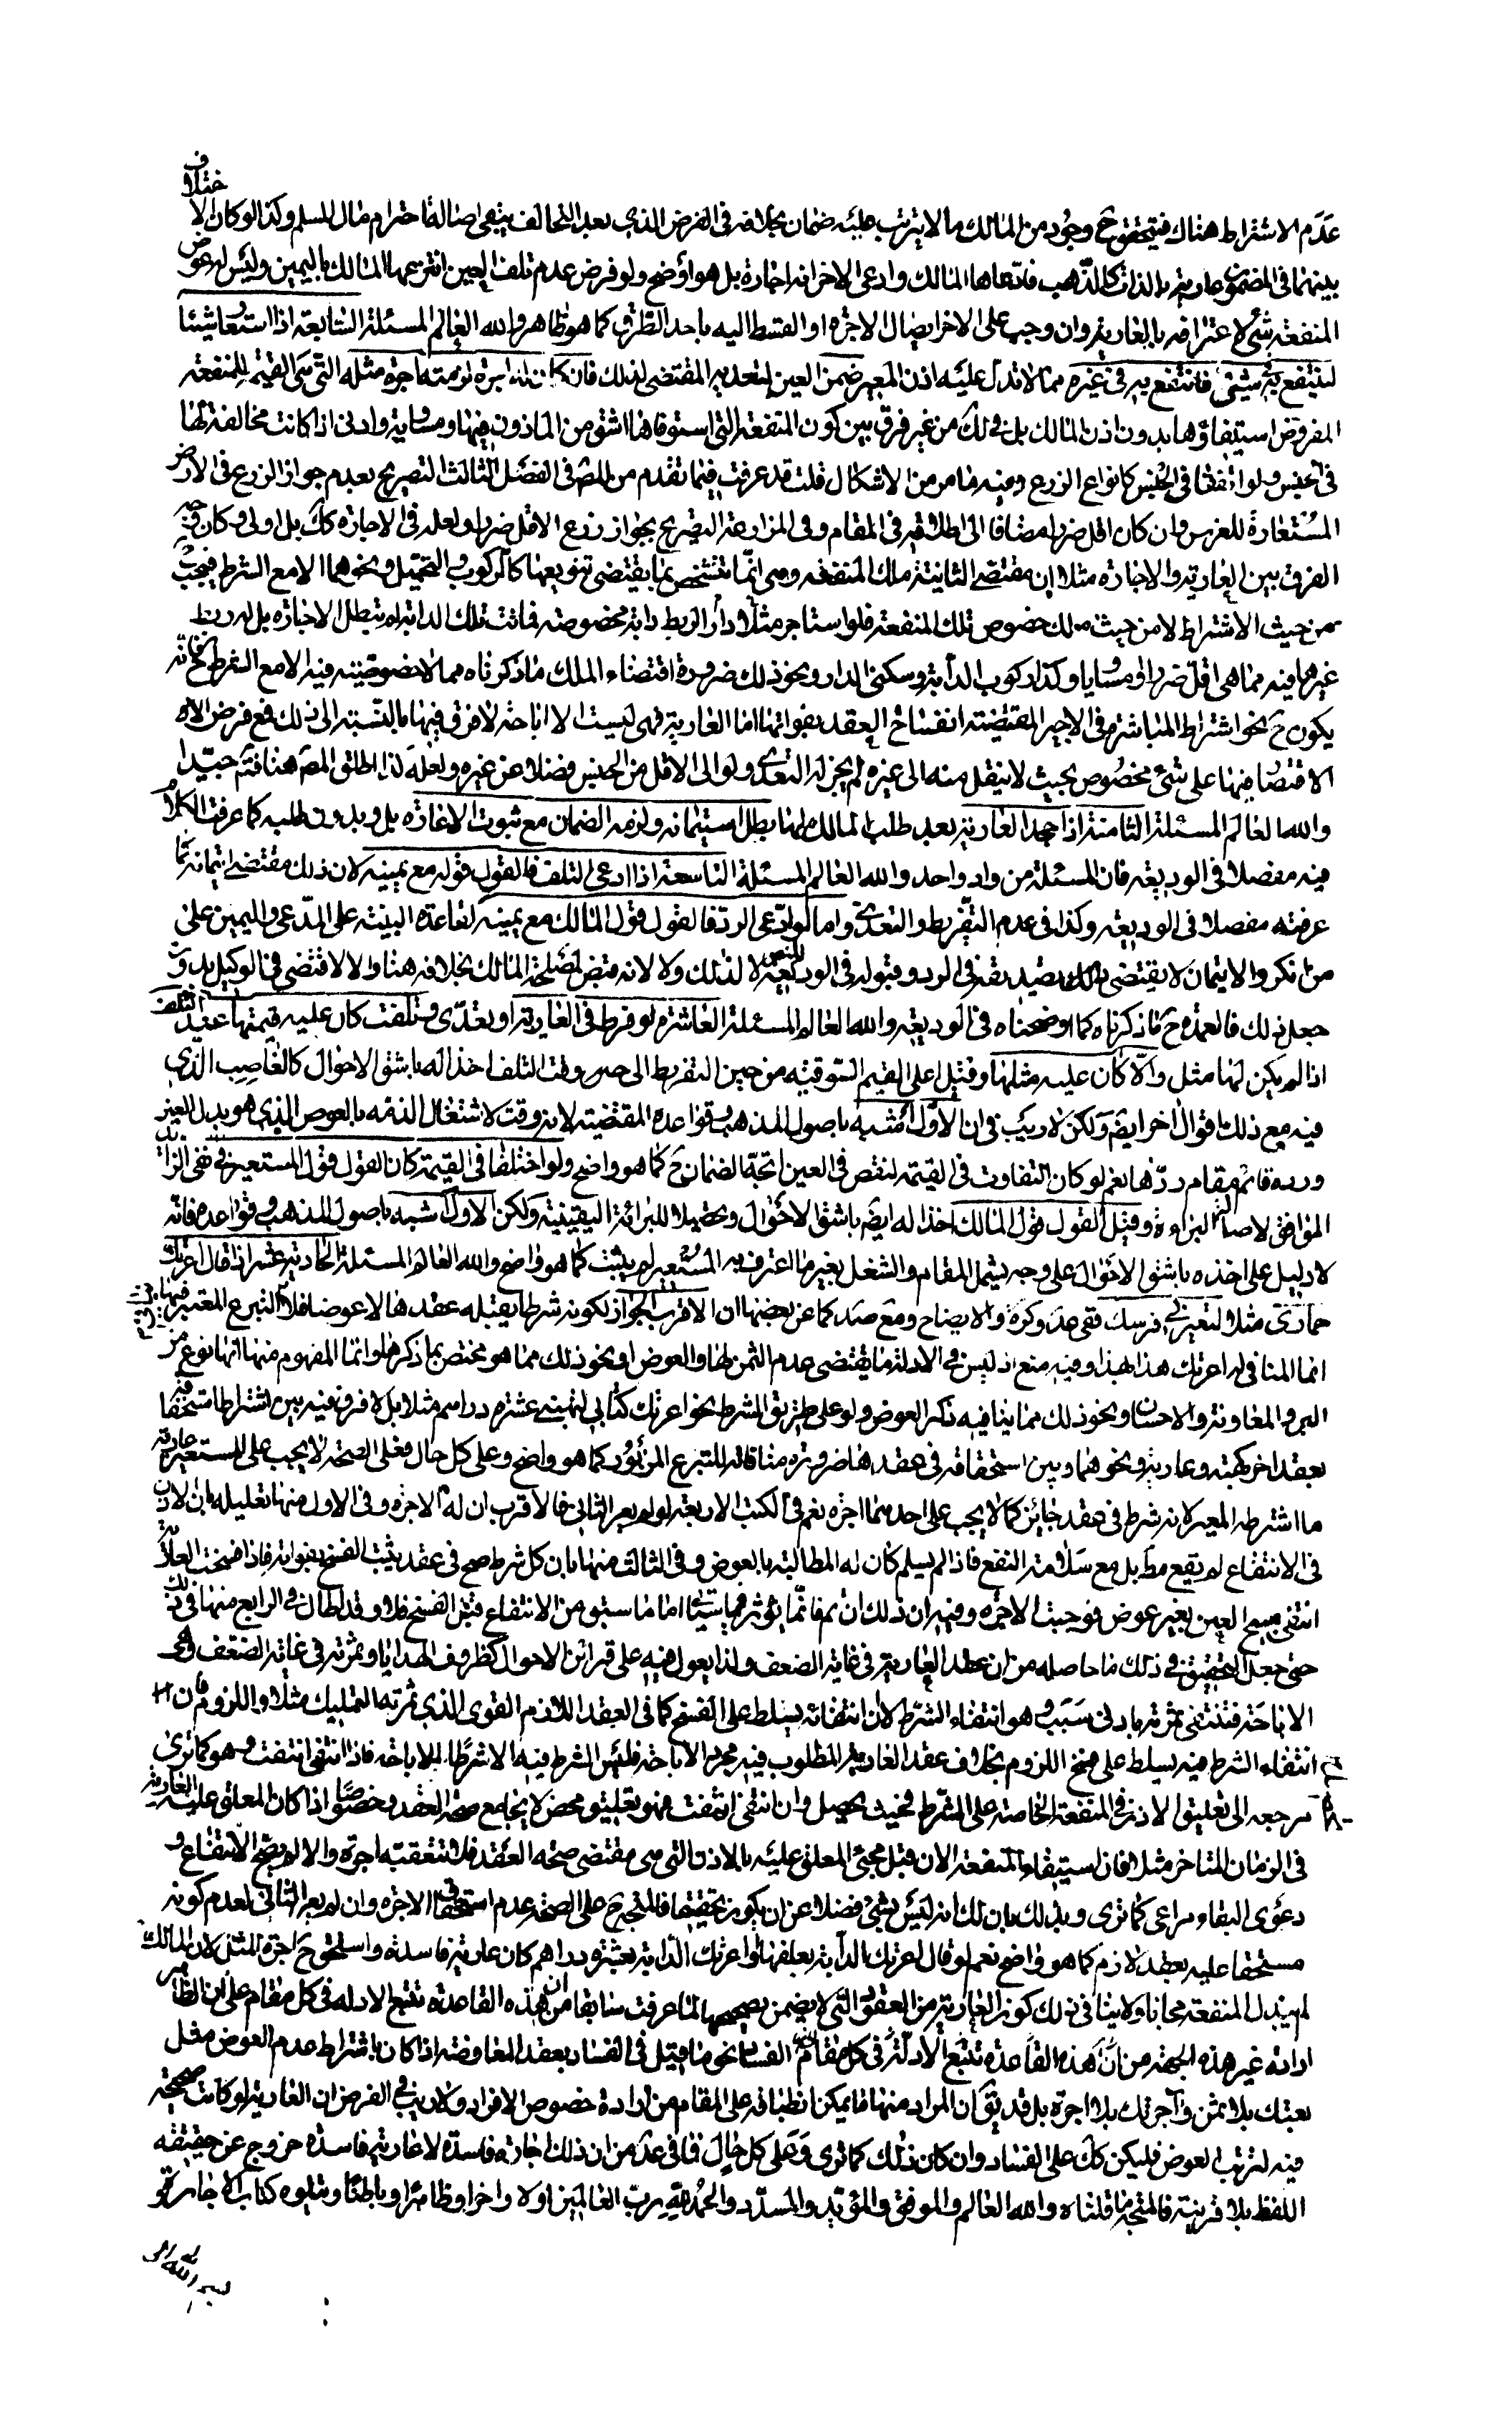 عدم الاشتراط هناك فيتحقق ح وجود من المالك ما لا يترتب عليه ضمان بخلافه فى الفرض الذى بعد التحالف يبقى اصالة احترام مال المسلم وكذا لو كان الاختلاف
بينهما فى المضمون عارية بالذات كالذهب فادعاها المالك وادعى الاخر انه اجارة بل هو اوضح ولو فرض عدم تلف العين انتزعها المالك باليمين وليس له عوض
المنفعة شئ لاعترافه بالعارية وان وجب على الاخر ايصال الاجرة او القسط اليه باحد الطرق كما هو ظاهر والله العالم المسئلة السابعة اذا استعار شيئا
لينتفع به فى شئ فانتفع به فى غيره مما لا تدل عليه اذن المعير ضمن العين لتعديه المقتضى لذلك فان كان له اجرة لزمته اجرة مثله التى هى القيمة للمنفعة
المفروض استيفاؤها بدون اذن المالك بل فى لك من غير فرق بين كون المنفعة التى استوفاها اشق من الماذون فيها ومساوية وادنى اذا كانت مخالفة لها
فى الجنس ولو اتفقتا فى الجنس كانواع الزرع ففيه ما مر من الاشكال قلت قد عرفت فيما تقدم من المص فى الفصل الثالث التصريح بعدم جواز الزرع فى الارض
المستعارة للغرس وان كان اقل ضررا مضافا الى اطلاقه فى المقام وفى المزارعة التصريح بجواز زرع الاقل ضررا ولعله فى الاجارة كك بل اولى وكان وجه
الفرق بين العارية والاجارة مثلا ان مقتضى الثانية ملك المنفعة وهى انما تتشخص بما يقتضى تنويعها كالركوب والتحميل ونحوهما الا مع الشرط فيجب
من حيث الاشتراط لا من حيث ملك خصوص تلك المنفعة فلو استاجر مثلا دارا لربط دابة مخصوصة فماتت تلك الدابة لم تبطل الاجارة بل له ربط
غيرها فيه مما هى اقل ضررا او مساويا وكذا ركوب الدابة وسكنى الدار ونحو ذلك ضرورة اقتضاء الملك ما ذكرناه مما لا خصوصية فيه الا مع الشرط فانه
يكون ح نحو اشتراط المباشرة فى الاجير المقتضية انفساخ العقد بفواتها اما العارية فهى ليست الا اباحة لا فرق فيها بالنسبة الى ذلك فمع فرض الاذن
الاقتصار فيها على شئ مخصوص بحيث لا ينتقل منه الى غيره لم يجز له التعدى ولو الى الاقل من الجنس فضلا عن غيره ولعله لذا اطلق المص هنا فتم جيدا
والله العالم المسئلة الثامنة اذا جحد العارية بعد طلب المالك لها بطل استيمانه ولزمه الضمان مع ثبوت الاعارة بل وبدون طلبه كما عرفت الكلام
فيه مفصلا فى الوديعة فان المسئلة من واد واحد والله العالم المسئلة التاسعة اذا ادعى التلف فالقول قوله مع يمينه لان ذلك مقتضى ايتمانه كما
عرفته مفصلا فى الوديعة وكذا فى عدم التفريط والتعدى واما لو ادعى الرد فالقول قول المالك مع يمينه لقاعدة البينة على المدعى واليمين على
من انكر والايتمان لا يقتضى بذلك تصديقه فى الرد وقبوله فى الوديعة للنص لا لذلك ولا لانه قبض لمصلحة المالك بخلافه هنا والا لاقتضى فى الوكيل بدون
جعل ذلك فالعمدة ح ما ذكرناه كما اوضحناه فى الوديعة والله العالم المسئلة العاشرة لو فرط فى العارية او تعدى وتلفت كان عليه قيمتها عند التلف
اذا لم يكن لها مثل والا كان عليه مثلها وقيل اعلى القيم السوقية من حين التفريط الى حين وقت التلف اخذا له باشق الاحوال كالغاصب الذى
فيه مع ذلك اقوال اخر ايض ولكن لا ريب فى ان الاول اشبه باصول المذهب وقواعده المقتضية لانه وقت لاشتغال الذمة بالعوض الذى هو بدل العين
ورده قائم مقام ردها نعم لو كان التفاوت فى القيمة لنقص فى العين اتجه الضمان ح كما هو واضح ولو اختلفا فى القيمة كان القول قول المستعير فى نفى الزائد
الموافق لاصالة البراءة وقيل القول قول المالك اخذا له ايض باشق الاحوال وتحصيلا للبرائة اليقينية ولكن الاول اشبه باصول المذهب وقواعده فانه
لا دليل على اخذه باشق الاحوال على وجه يشمل المقام والشغل بغير ما اعترف به المستعير لم يثبت كما هو واضح والله العالم المسئلة الحادية عشر اذا قال اعرتك
حمارى مثلا لتعيرنى فرسك ففى عد وكره والايضاح ومع صد كما عن بعضها ان الاقرب الجواز لكونه شرطا يقبله عقدها لا عوضا فلا التبرع المعتبر فيها
انما المنافى له اعرتك هذا بهذا وفيه منع اذ ليس فى الادلة ما يقتضى عدم الثمن لها والعوض او نحو ذلك مما هو مختص بما ذكرها وانما المفهوم منها انها نوع من
البر والمعاونة والاحسان ونحو ذلك مما ينافيه ذكر العوض ولو على طريق الشرط نحو اعرتك كتابى لتهبنى عشرة دراهم مثلا بل لا فرق فيه بين اشتراط مستحقا فيه
بعقد اخر كهبة وعارية ونحوهما وبين استحقاقه فى عقدها ضرورة منافاته للتبرع المزبور كما هو واضح وعلى كل حال فعلى الصحة لا يجب على المستعير عارية
ما اشترطه المعير لانه شرط فى عقد جائز كما لا يجب على احدهما اجرة نعم فى الكتب الاربعة لو لم يعر الثانى فالاقرب ان له الاجرة وفى الاول منها تعليله بان الاذن
فى الانتفاع لم يقع مط بل مع سلامة النفع فاذا لم يسلم كان له المطالبة بالعوض وفى الثالث منها بان كل شرط صح فى عقد يثبت الفسخ بفواته فاذا فسخت العارية
انتفى مبيح العين بغير عوض فوجبت الاجرة وفيه ان ذلك ان تم فانما يؤثر فيما ياتى اما ما سبق من الانتفاع قبل الفسخ فلا وقد اطال فى الرابع منها فى ذلك
حتى جعل التحقيق فى ذلك ما حاصله من ان عقد العارية فى غاية الضعف ولذا يعول فيه على قرائن الاحوال كظروف الهدايا وثمرته فى غاية الضعف وهى
الاباحة فتنتفى ثمرته بادنى سبب وهو انتفاء الشرط لان انتفائه يسلط على الفسخ كما فى العقد اللازم القوى الذى ثمرته التمليك مثلا واللزوم فان
انتفاء الشرط فيه يسلط على فسخ اللزوم بخلاف عقد العارية المطلوب فيه مجرد الاباحة فليس الشرط فيه الا شرطا للاباحة فاذا انتفى انتفت وهو كما ترى
مرجعه الى تعليق الاذن فى المنفعة الخاصة على الشرط فحيث يحصل وان انتفى انتفت فهو تعليق محض لا يجامع صحة العقد وخصوصا اذا كان المعلق عليه العارية
فى الزمان المتاخر مثلا فان استيفاء المنفعة الان قبل مجئ المعلق عليه بالاذن التى هى مقتضى صحة العقد فلا تتعقبه اجرة والا لم يصح الانتفاع و
دعوى البقاء مراعى كما ترى وبذلك بان لك انه ليس بشئ فضلا عن ان يكون تحقيقا فالمتجه ح على الصحة عدم استحقاق الاجرة وان لم يعر الثانى لعدم كونه
مستحقا عليه بعقد لازم كما هو واضح نعم لو قال اعرتك الدابة بعلفها او اعرتك الدابة بعشرة دراهم كان عارية فاسدة واستحق ح اجرة المثل لان المالك
لم يبذل المنفعة مجانا ولا ينافى ذلك كون العارية من العقود التى لا يضمن بصحيحها لما عرفت سابقا من ان هذه القاعدة تتبع الادلة فى كل مقام على ان الظاهر
ارادة غير هذه الجهة من ان هذه القاعدة تتبع الادلة فى كل مقام الفساد نحو ما قيل فى الفساد بعقد المعاوضة اذا كان باشتراط عدم العوض مثل
بعتك بلا ثمن وآجرتك بلا اجرة بل قد يق ان المراد منها ما يمكن انطباقه على المقام من ارادة خصوص الافراد ولا ريب فى الفرض ان العارية لو كانت صحيحة
فيه لترتب العوض فليكن كك على الفساد وان كان ذلك كما ترى وعلى كل حال فما فى عد من ان ذلك اجارة فاسدة لا عارية فاسدة خروج عن حقيقة
اللفظ بلا قرينة فالمتجه ما قلناه والله العالم والموفق والمؤيد والمسدد والحمد لله رب العالمين اولا واخرا وظاهرا وباطنا ويتلوه كتاب الاجارة